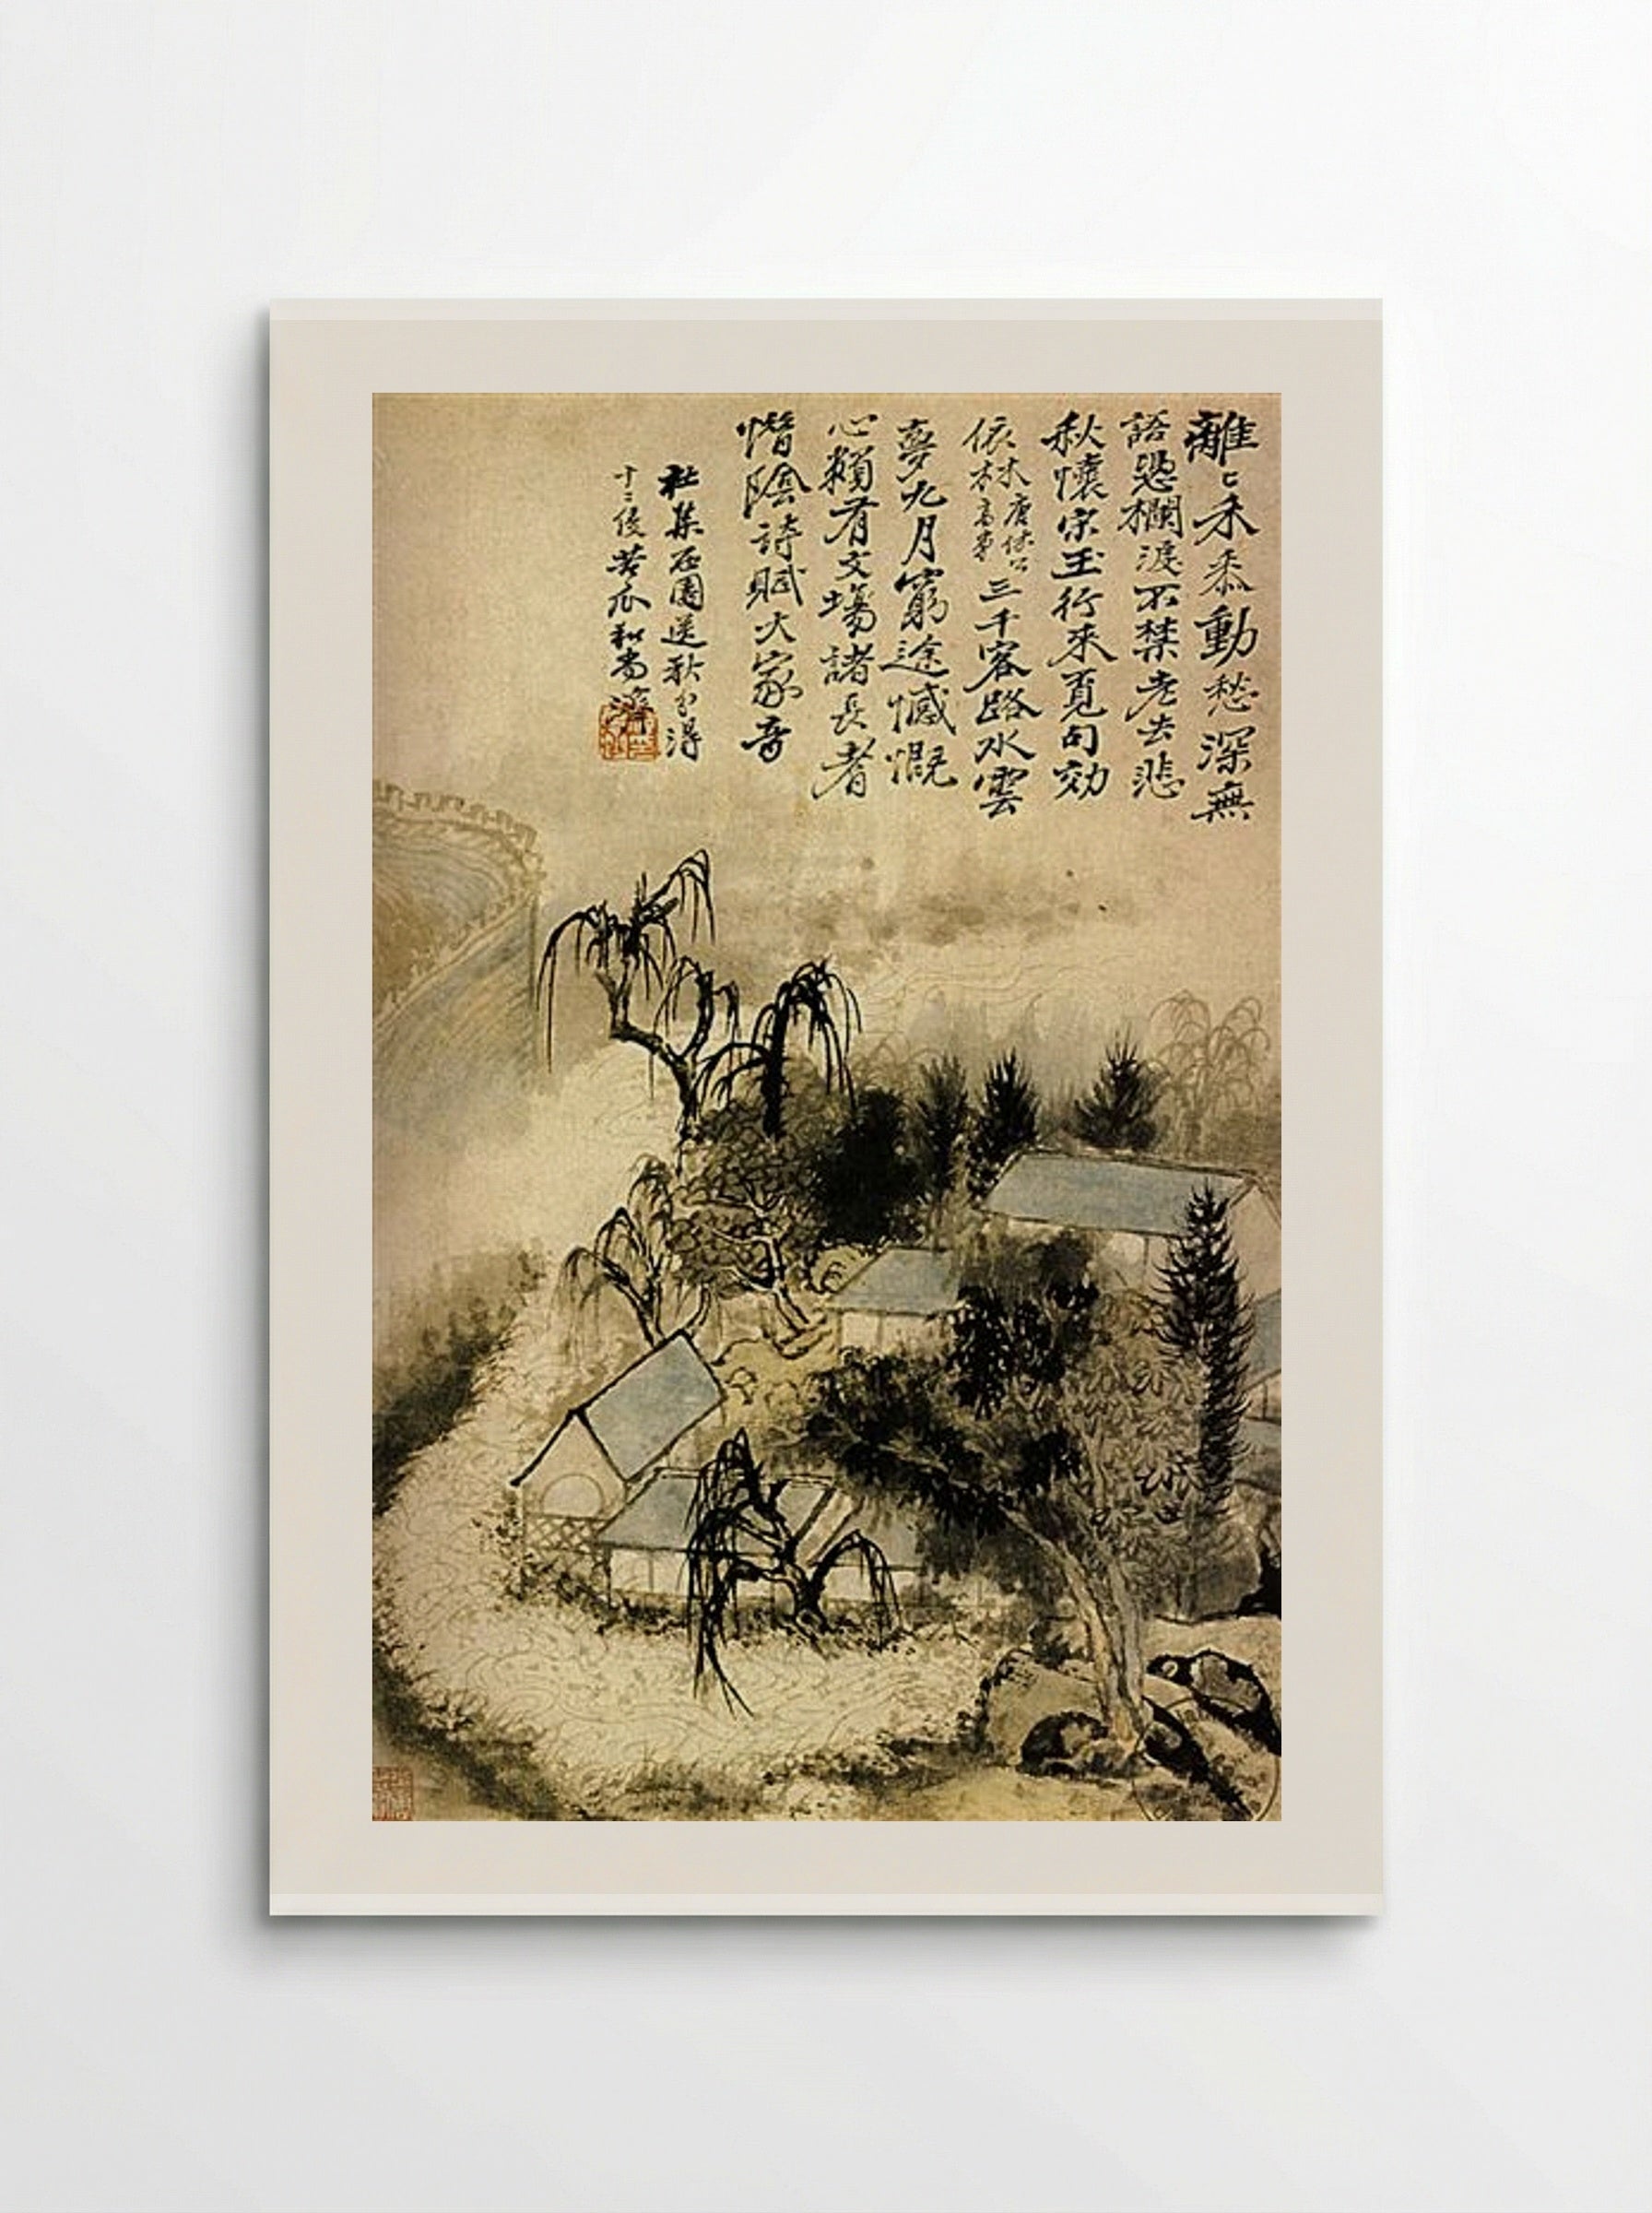 離〻禾黍動愁深無
語憑欄淚不禁老去悲
秋懷宋玉行來覓句効
依林唐休公
林高弟三千客路水雲
夢九月窮途憾慨
心賴有文場諸長者
惜陰詩賦大家音
社集西園送秋分得
十二侵苦瓜和尚濟